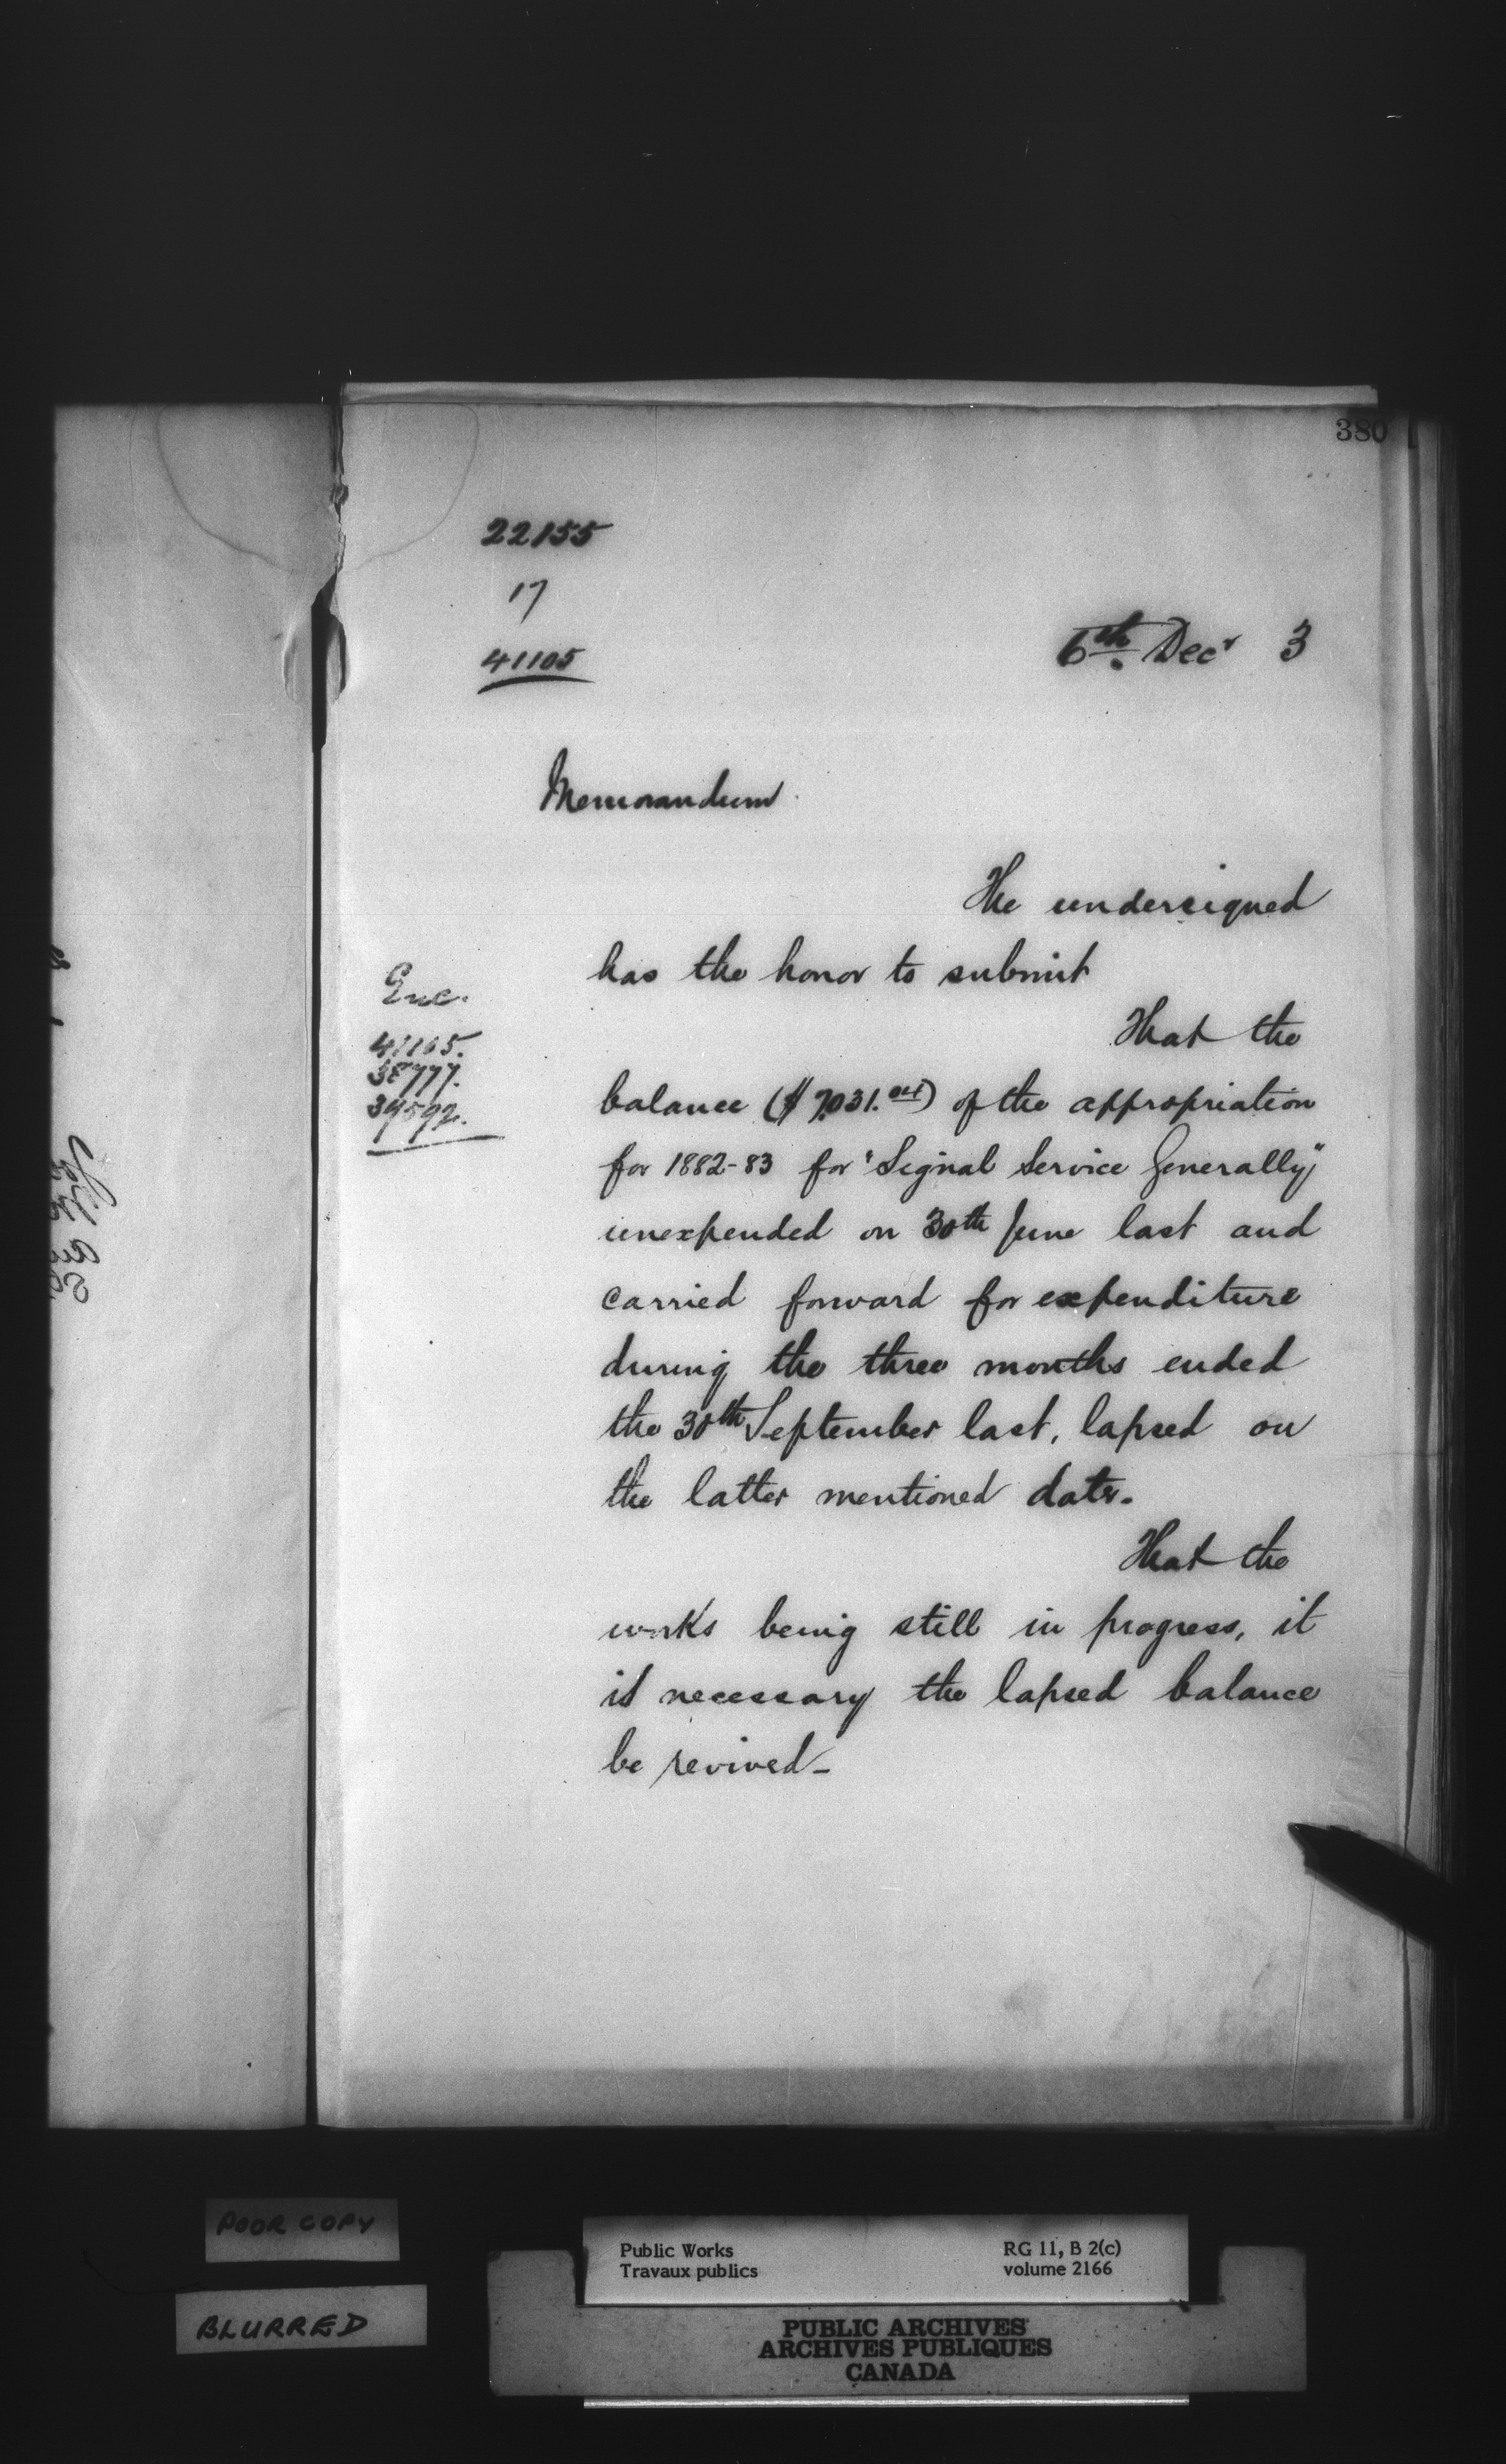 380
22155
17
41105
6th. Decr 3
Memorandum.
The undersigned
has the honor to submit
Enc.
That the
41105.
38777.
balance ($ 7,031.) of the appropriation
for 1882-83 for "Signal Service Generally"
unexpended on 30th June last and
carried forward for expenditure
during the three months ended
the 30th September last, lapsed on
the latter mentioned date.
That the
works being still in progress, it
is necessary the lapsed balance
be revived_
POOR COPY
BLURRED
Public Works
Travaux publics
RG 11, B 2(c)
volume 2166
PUBLIC ARCHIVES
ARCHIVES PUBLIQUES
CANADA